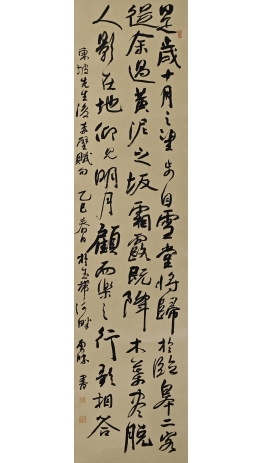 是歲十月之望步自雪堂將歸於臨皋二客
從余過黃泥之坂霜露既降木葉盡脫
人影在地仰見明月顧而樂之行歌相答
東坡先生後赤壁賦句 乙巳春日 於玉帶河畔 書